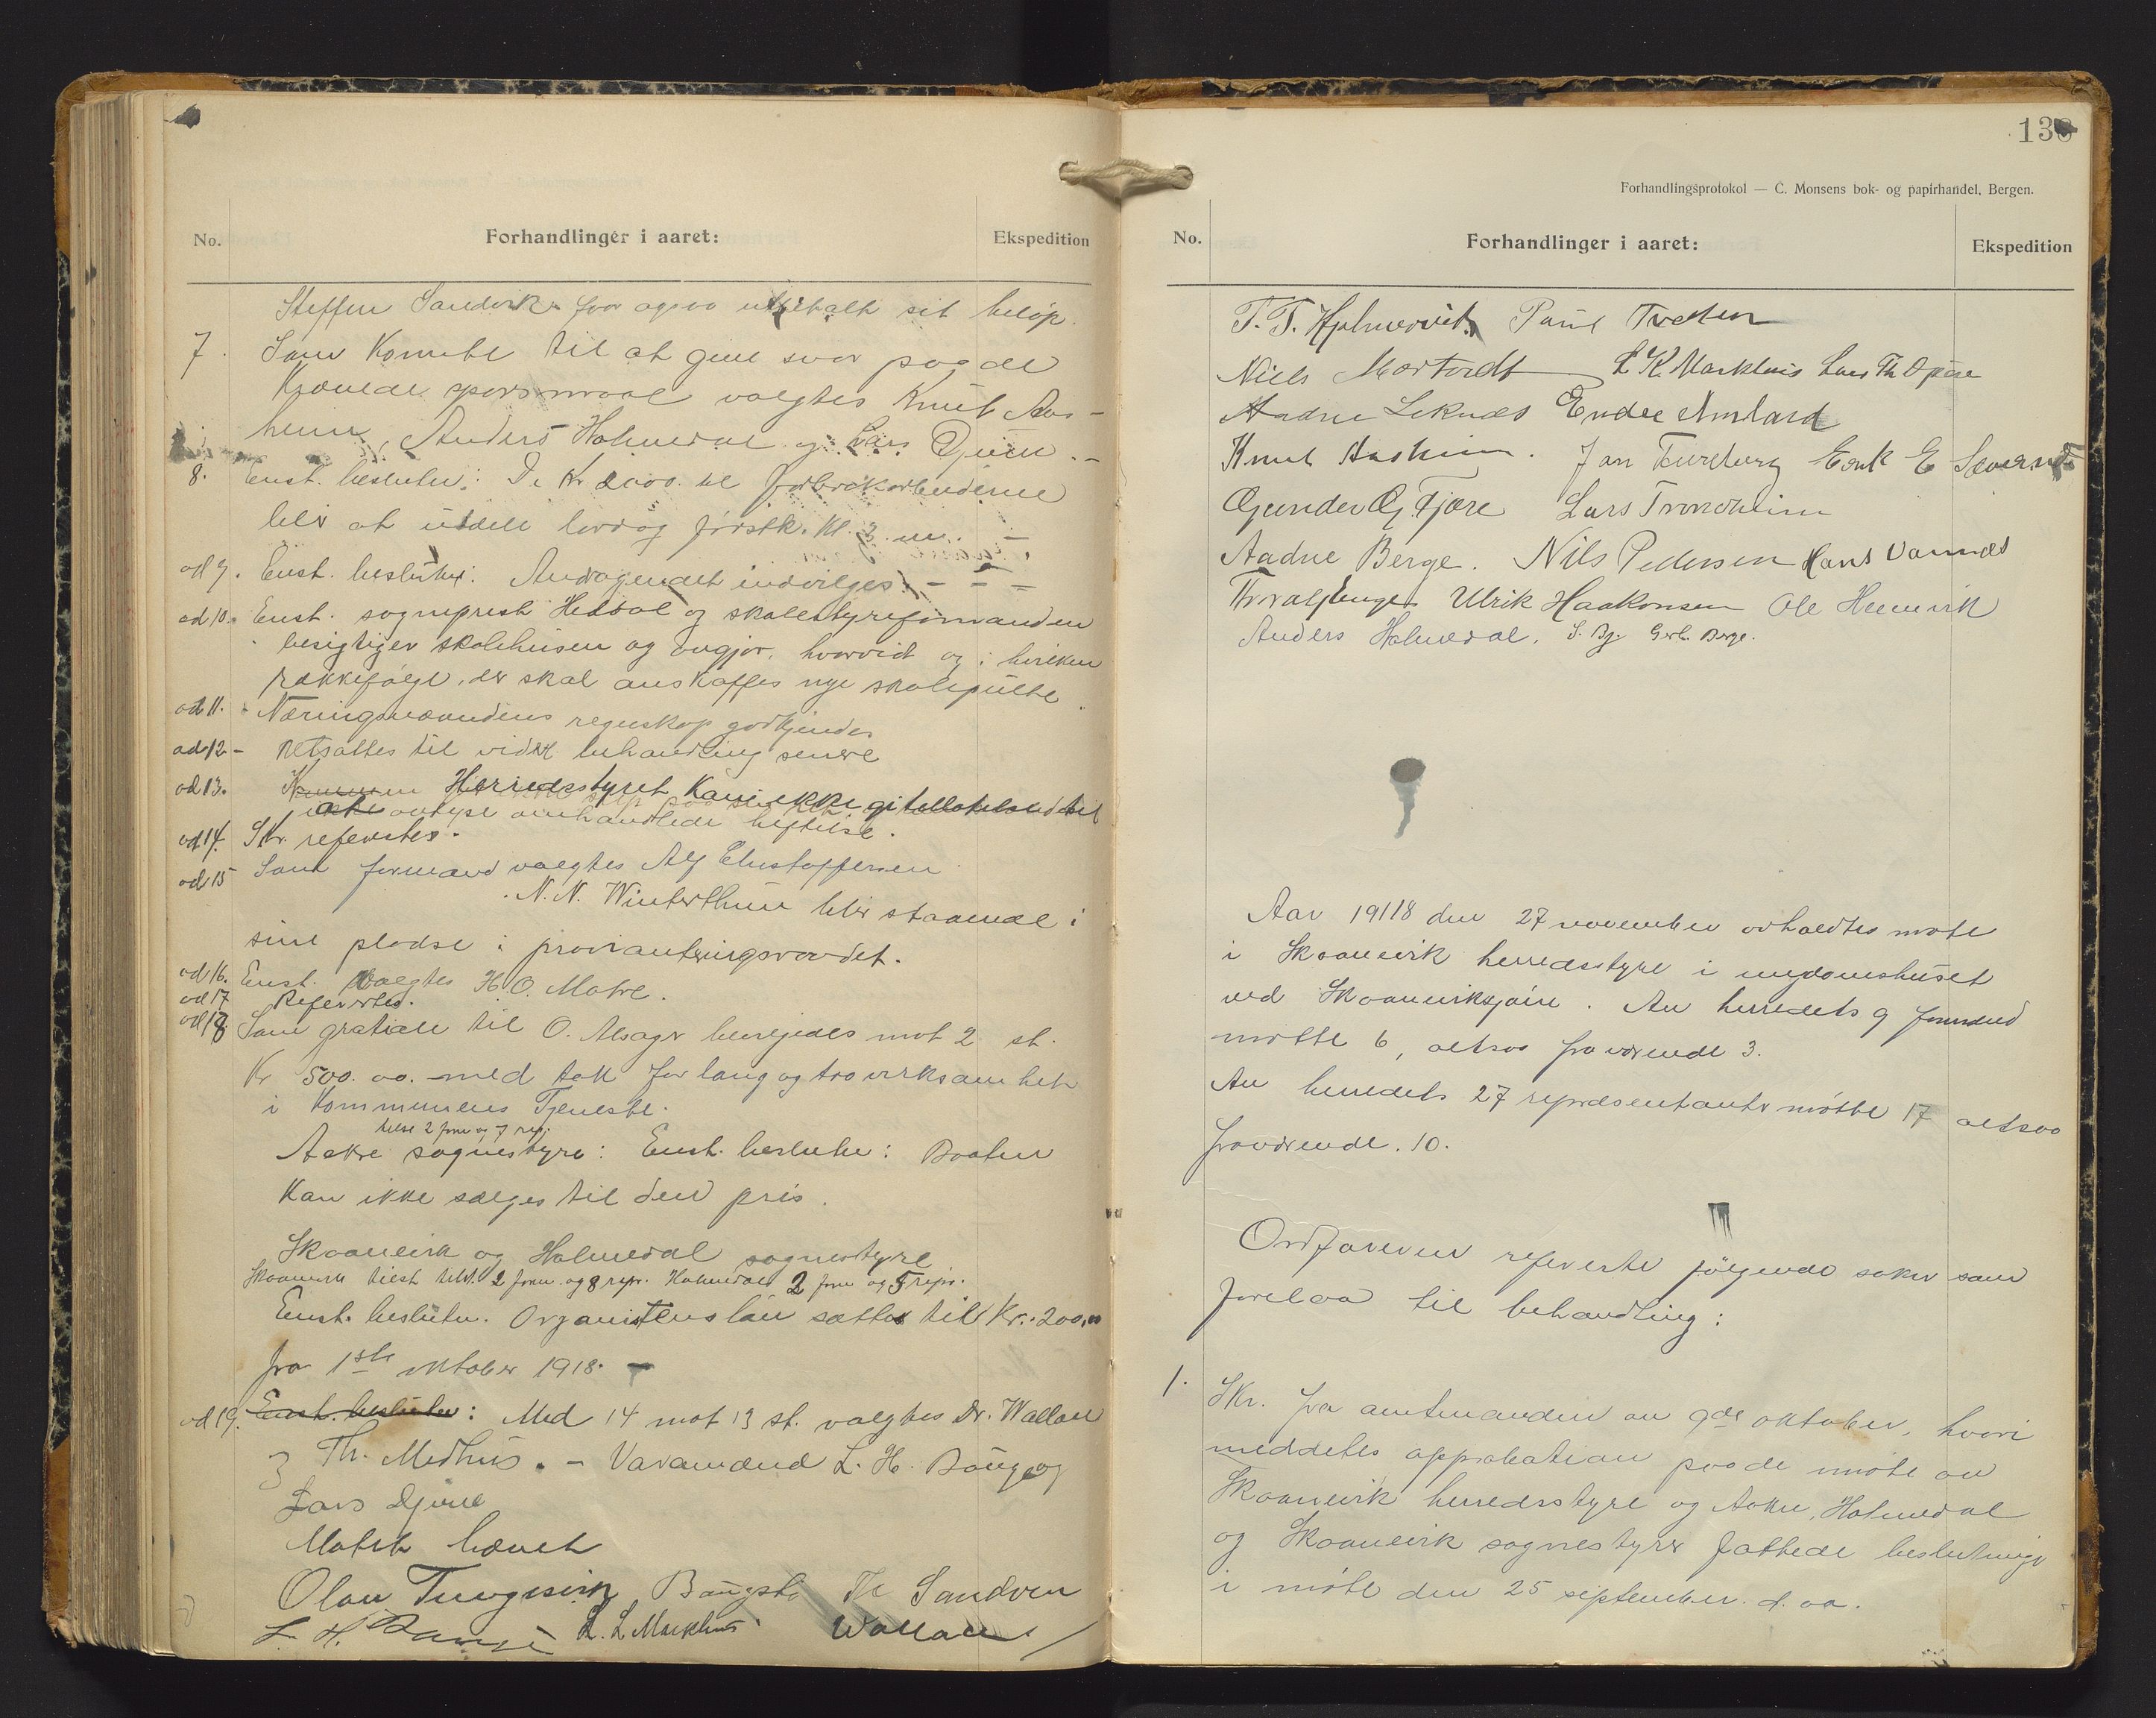 No.
Forhandlinger i aaret:
Ekspedition
Steffen Sandvik faar ogsaa utbetalt sit beløp.
7. Som Komite til at give svar paa de
krævede spørsmaal valgtes Knut Aas-
heim, Anders Holmedal og Lars Djuve.-
8. Enst. beslutn: De Kr 2000 til
blir at utdele lørdag førstk. Kl. 3 em. -
ad 9. Enst. beslutn: Andragendet indvilges. - - -
ad 10. Enst. sogneprest Hedbal og skolestyreformanden
besigtiger skolehusen og avgjør, hvorvidt og i hvilken
rækkefølge, der skal anskaffes nye skolepulte.
ad 11. Næringsnævndens regnskap godkjendes
ad 12 - Utsattes til videre behandling senere
ad 13. Kommunen Herredsstyret kan ikke gi tillatelse til
ikke avlyse omhandlede heftelse.
ad 14. Skr. refertes.
ad 15 Som formand valgtes Alf Christoffersen
N. N. Winterthun blir staaende i
sine pladse i provianteringsraadet.
ad 16. Enst. valgtes H. O. Matre.
ad 17 Refertes.
ad 18. Som gratiale til O. Alsager bevilgedes mot 2 st.
Kr 500.00. med tak for lang og tro virksamhet
i Kommunens Tjeneste.
tilst 2 form og 7 rep.
Aakre sognestyre: Enst. beslutn: Baaten
kan ikke sælges til den pris.
Skaanevik og Holmedal sognestyre
Skaanevik tilst. 2 form. og 8 repr. Holmedal 2 form og 5 repr.
Enst. beslutn. Organistens løn sættes til Kr. 200,00
fra 1ste oktober 1918. -
ad 19. Enst. beslutn: Med 14 mot 13 st. valgtes Dr. Wallace
Th. Medhus. - Varamænd L. H. Bauge og
Lars Djuve
Møtet hævet
Olav Tungesvik Baugstø Th Sandven
L. H. Bauge L. L. Markhus Wallace
138
Forhandlingsprotokol — C. Monsens bok- og papirhandel, Bergen.
No.
Forhandlinger i aaret:
Ekspedition
T. T. Hjelmervik Paul Tveten
Niels L K. Markhus Lars Th Opsøe
Aadne Leknes Endre Amland
Knut Aasheim. Jan Tureborg Erik E
Gunder G. Fjære Lars Trondheim
Aadne Berge. Nils Pedersen Hans Vannes
Ulrik Haakonsen Ole Heimvik
Anders Holmedal. Berge.
Aar 1918 den 27 november avholdtes møte
i Skaanevik herredsstyre i ungdomshuset
ved Skaaneviksjøen. Av herredets 9 formænd
møtte 6, altsaa fraværende 3.
Av herredets 27 repræsentanter møtte 17 altsaa
fraværende. 10.
Ordføreren referte følgende saker som
forelaa til behandling:
1. Skr. fra amtmanden av 9de oktober, hvori
meddeles approbation paa de møte av
Skaanevik herredsstyre og Aakre, Holmedal
og Skaanevik sognestyrer fattede beslutninger
i møte den 25 september d. aa.